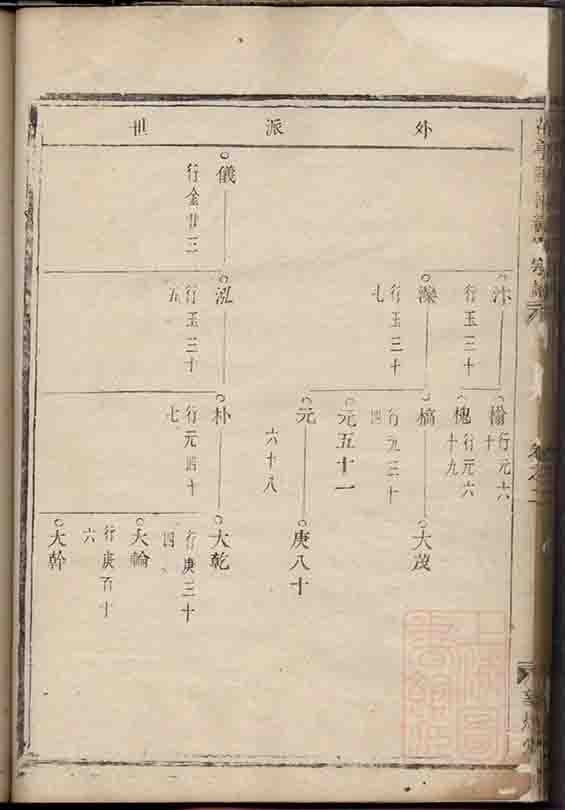 外派世
汴
行玉三十
榆
行元六十
槐
行元六十九
濼
行玉三十七
槁
行元三十四
大茂
元五十一
元
六十八
庚八十
儀
行金廿三
泓
行玉三十五
朴
行元四十七
大乾
行庚三十四
大輪
行庚百十六
大幹
卷之二